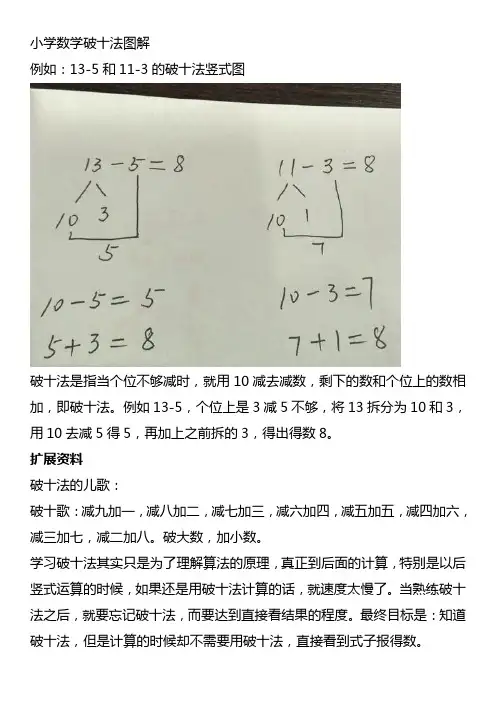 小学数学破十法图解
例如：13-5和11-3的破十法竖式图
13-5=8 11-3=8
10 3 10 1
5 7
10-5=5 10-3=7
5+3=8 7+1=8
破十法是指当个位不够减时，就用10减去减数，剩下的数和个位上的数相
加，即破十法。例如13-5，个位上是3减5不够，将13拆分为10和3，
用10去减5得5，再加上之前拆的3，得出得数8。
扩展资料
破十法的儿歌：
破十歌：减九加一，减八加二，减七加三，减六加四，减五加五，减四加六，
减三加七，减二加八。破大数，加小数。
学习破十法其实只是为了理解算法的原理，真正到后面的计算，特别是以后
竖式运算的时候，如果还是用破十法计算的话，就速度太慢了。当熟练破十
法之后，就要忘记破十法，而要达到直接看结果的程度。最终目标是：知道
破十法，但是计算的时候却不需要用破十法，直接看到式子报得数。